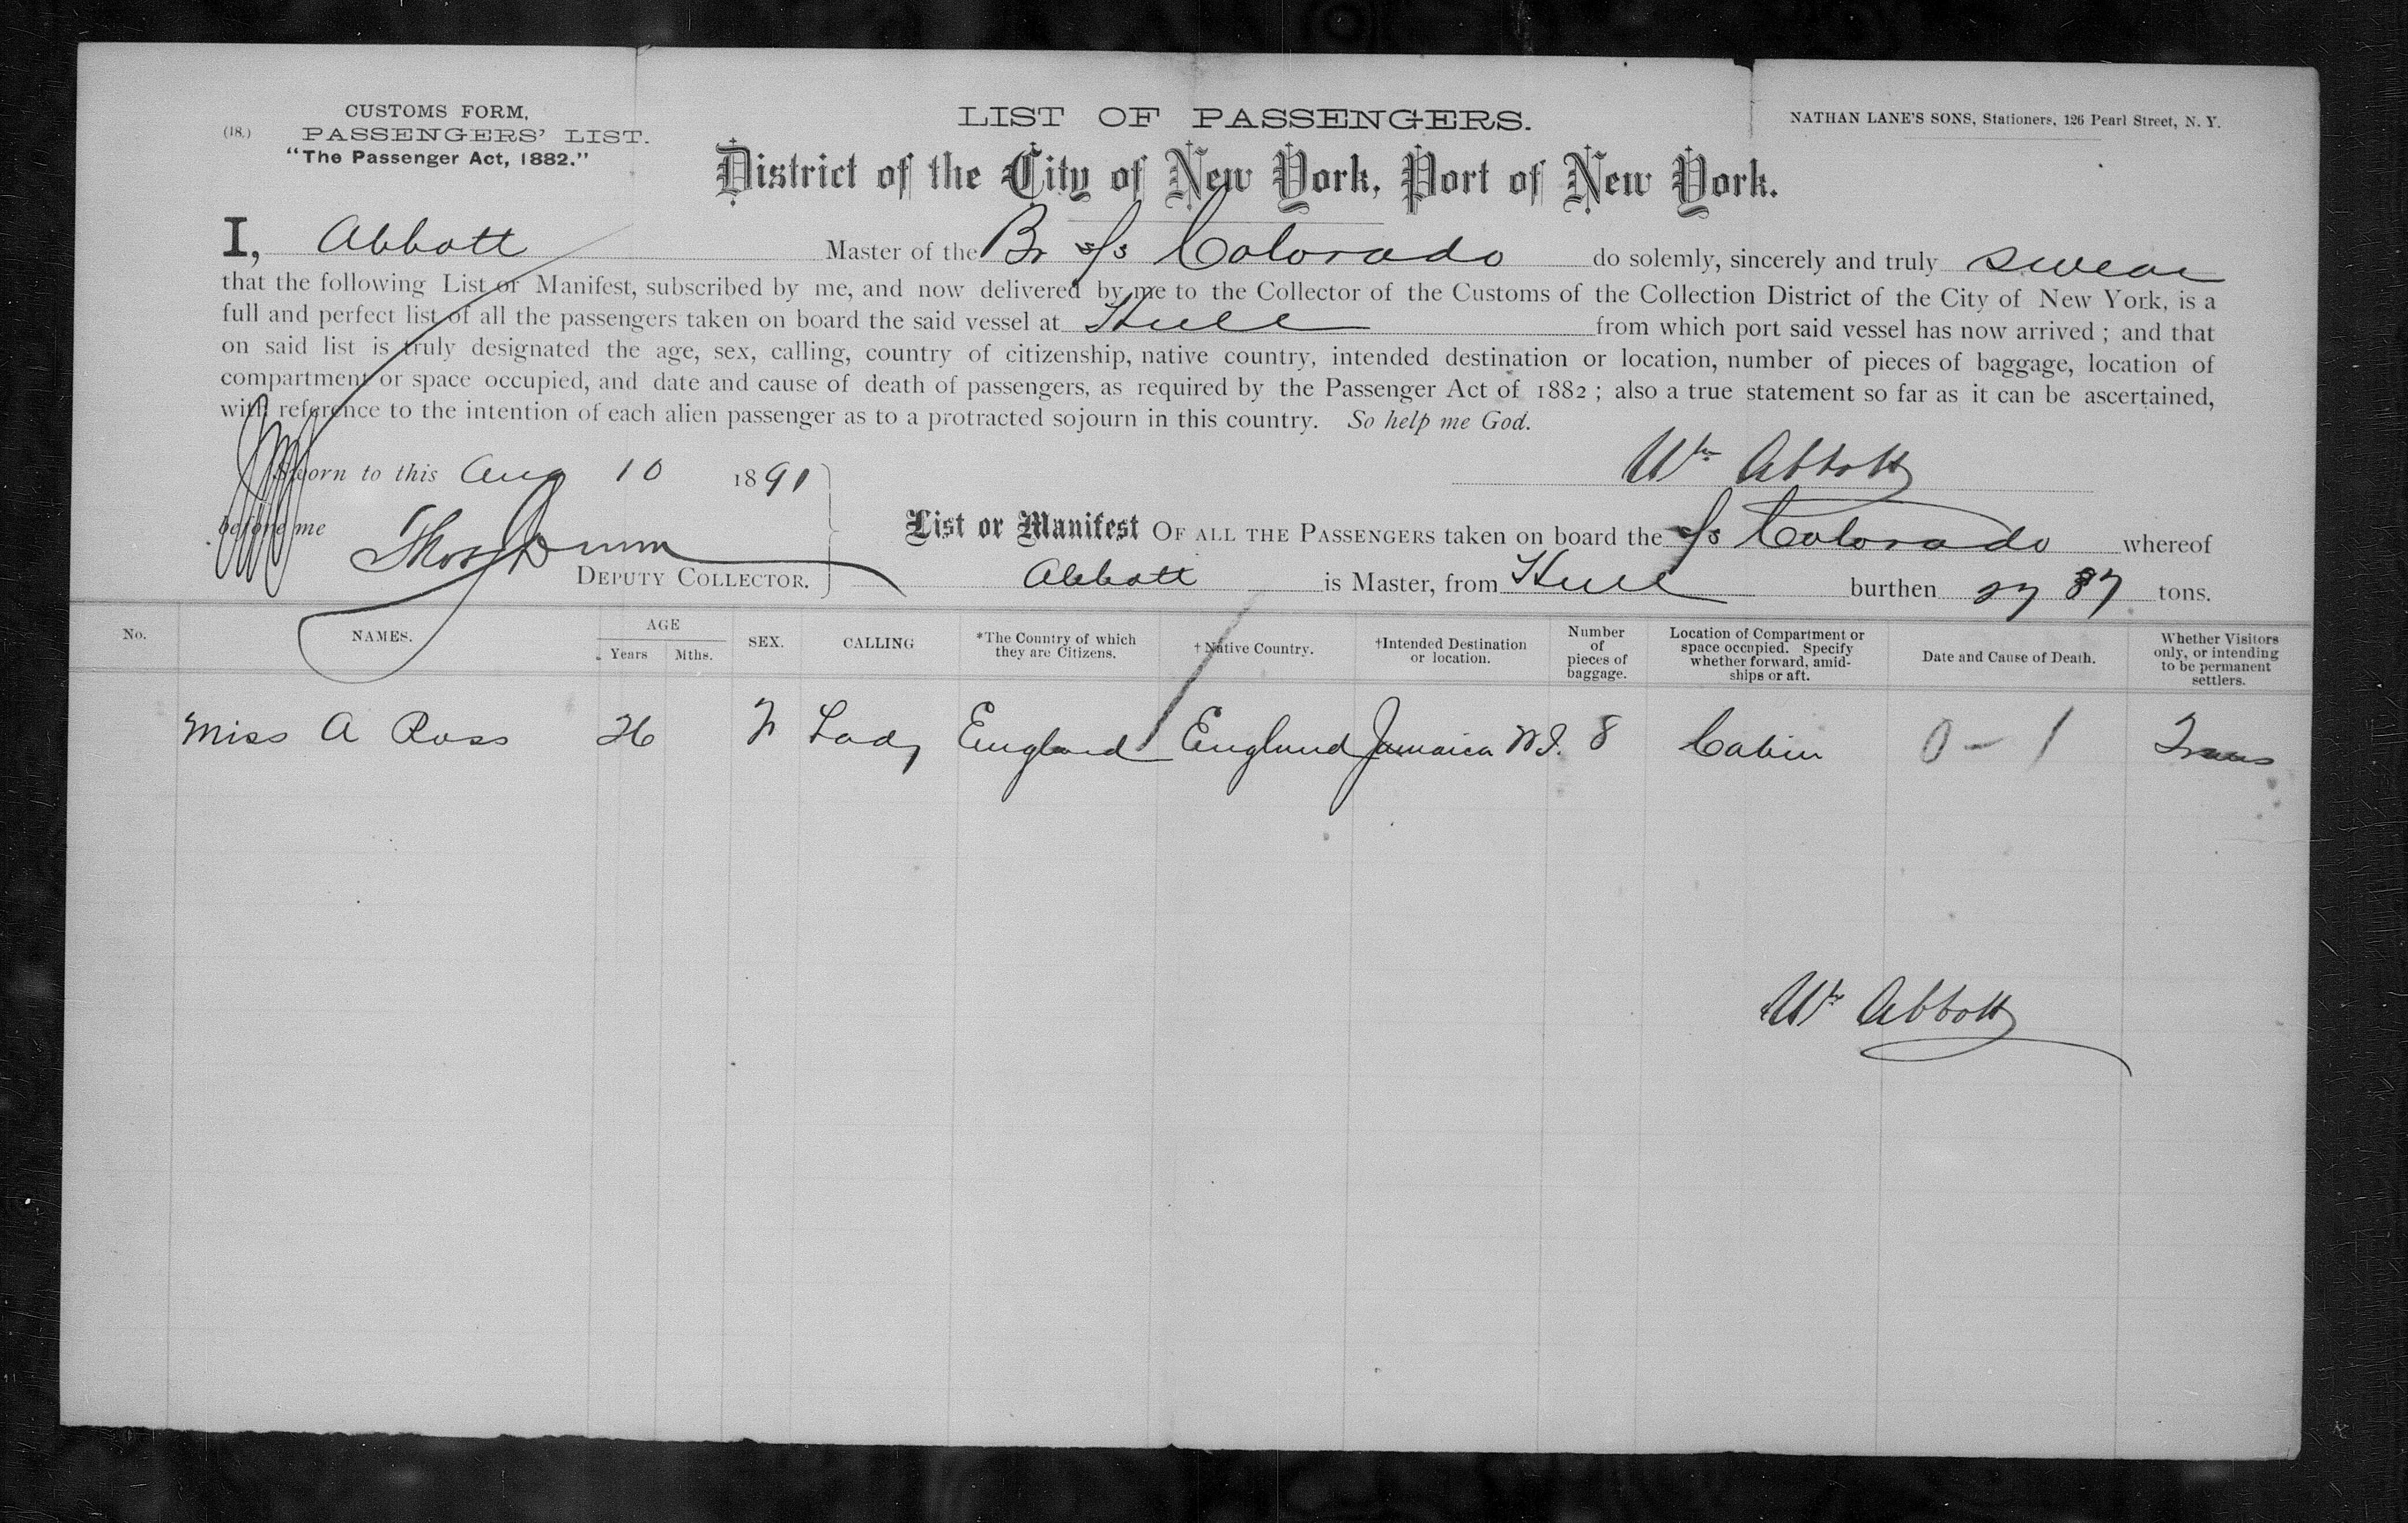 CUSTOMS FORM,
(18.) PASSENGERS' LIST.
"The Passenger Act, 1882."
LIST OF PASSENGERS.
NATHAN LANE'S SONS, Stationers, 126 Pearl Street, N. Y.
District of the City of New York, Port of New York.
I, Abbott Master of the Br s/s Colorado do solemly, sincerely and truly swear
that the following List or Manifest, subscribed by me, and now delivered by me to the Collector of the Customs of the Collection District of the City of New York, is a
full and perfect list of all the passengers taken on board the said vessel at Hull from which port said vessel has now arrived ; and that
on said list is truly designated the age, sex, calling, country of citizenship, native country, intended destination or location, number of pieces of baggage, location of
compartment or space occupied, and date and cause of death of passengers, as required by the Passenger Act of 1882 ; also a true statement so far as it can be ascertained,
with reference to the intention of each alien passenger as to a protracted sojourn in this country. So help me God.
Sworn to this Aug 10 1891
Wm Abbott
before me Thos Dunn
DEPUTY COLLECTOR.
List or Manifest OF ALL THE PASSENGERS taken on board the s/s Colorado whereof
Abbott is Master, from Hull burthen 2787 tons.
No. NAMES. AGE Years Mths. SEX. CALLING *The Country of which they are Citizens. †Native Country. †Intended Destination or location. Number of pieces of baggage. Location of Compartment or space occupied. Specify whether forward, amid-ships or aft. Date and Cause of Death. Whether Visitors only, or intending to be permanent settlers.
Miss A Ross 26 F Lady England England Jamaica W.I. 8 Cabin 0 - 1 Trans
Wm Abbott